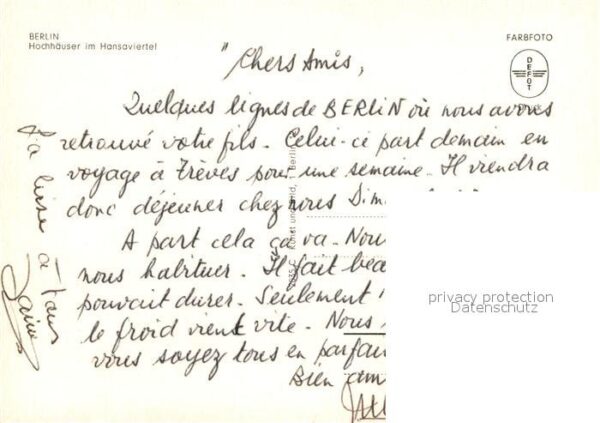 BERLIN
Hochhäuser im Hansaviertel
FARBFOTO
DEFOT
" Chers Amis,
Quelques lignes de BERLIN où nous avons
retrouvé votre fils. Celui-ci part demain en
voyage à Trèves pour une semaine. Il viendra
donc déjeuner chez nous Dim
A part cela ça va. Nou
nous habituer. Il fait bea
pouvait durer. Seulement
le froid vient vite. Nous
vous soyez tous en parfai
Bien am
privacy protection
Datenschutz
à tous